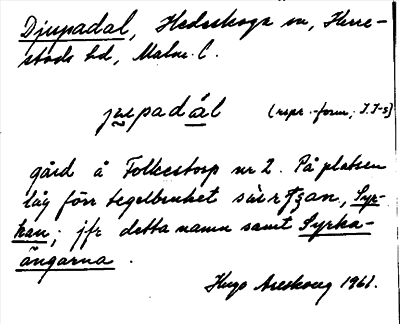 Djupadal, Hedeskoga sn, Herre-
stads hd, Malm. l.
jupadál (rspr.-form; I.I-s)
gård å Folkestorp nr 2. På platsen
låg förr tegelbruket, Syr-
kan; jfr detta namn samt Syrka-
ängarna.
Hugo Areskoug 1961.